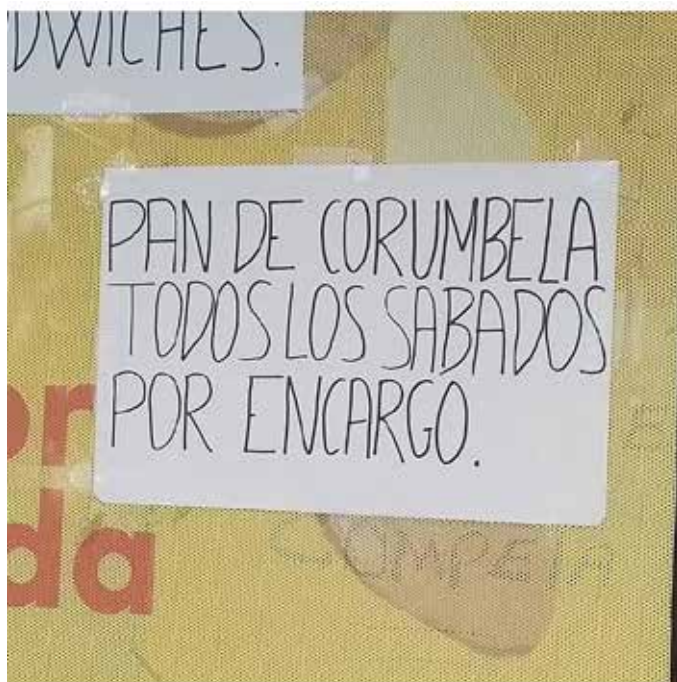 DWICHES.
PAN DE CORUMBELA
TODOS LOS SABADOS
POR ENCARGO.
or
da
COMPETA